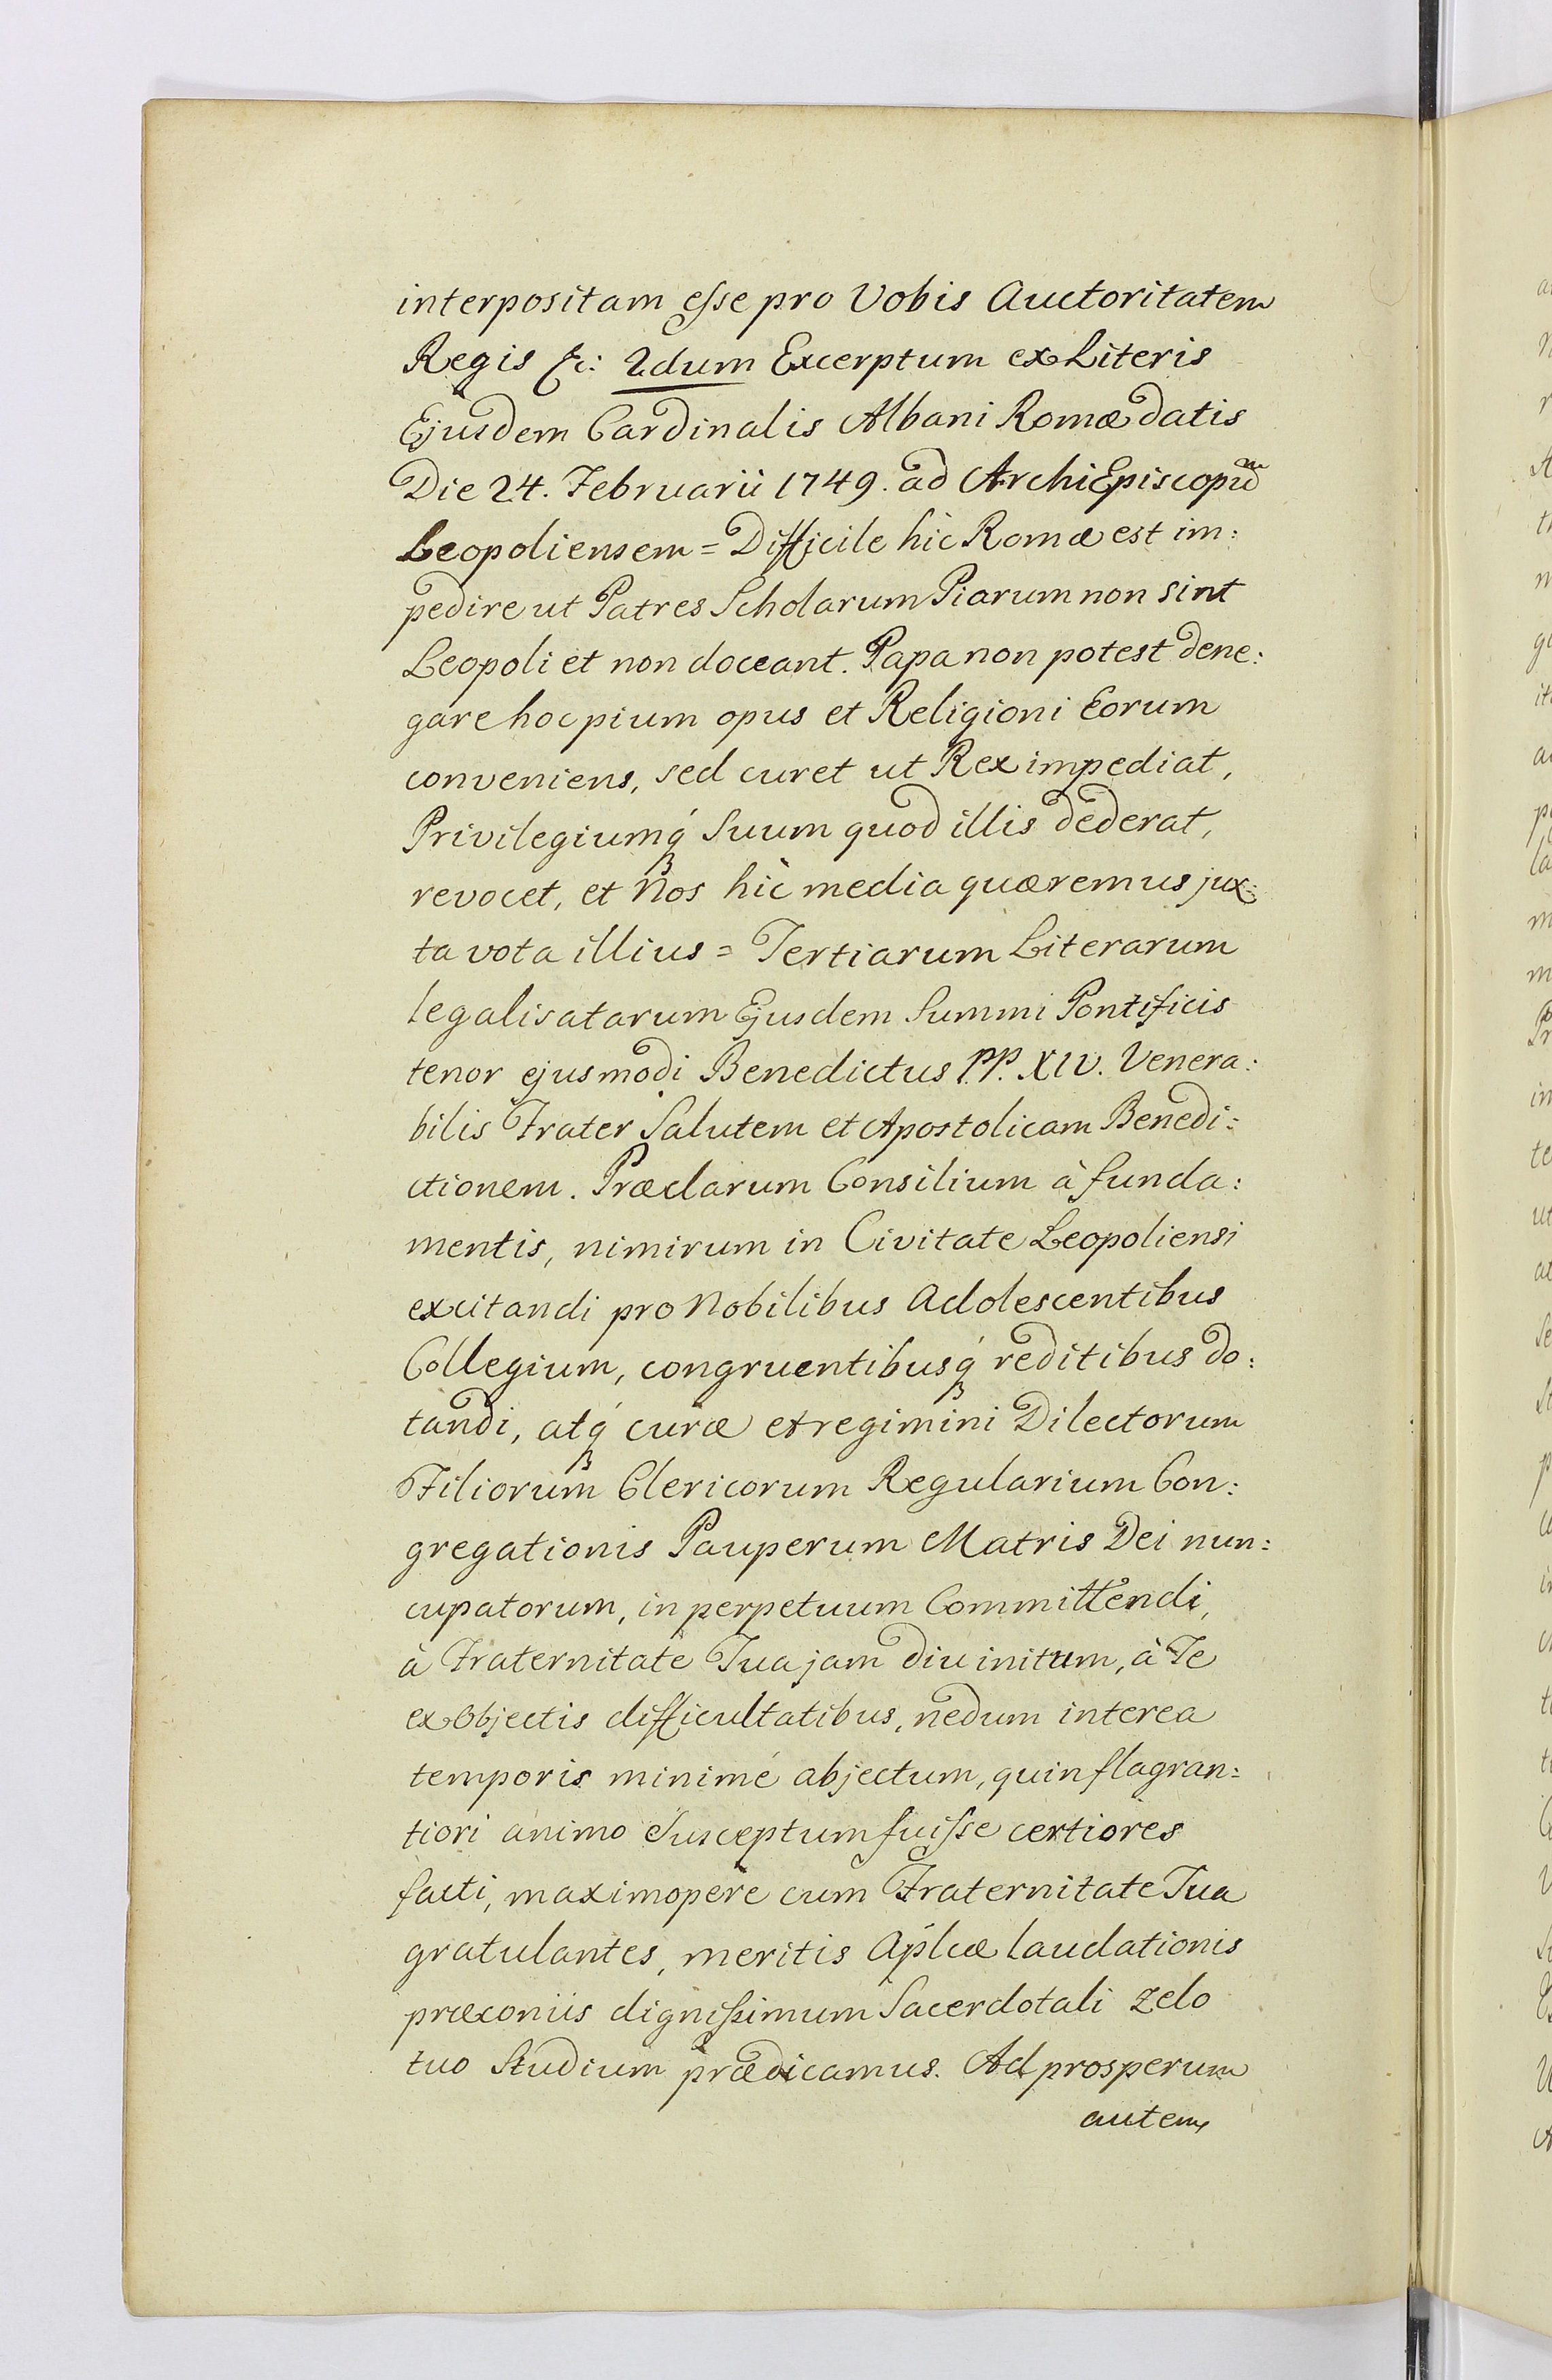 interpositam esse pro Vobis Auctoritatem
Regis &c: 2dum Excerptum ex Literis
Ejusdem Cardinalis Albani Romæ datis
Die 24. Februarii 1749. ad ArchiEpiscopũm
Leopoliensem = Difficile hic Romæ est im:
pedire ut Patres Scholarum Piarum non sint
Leopoli et non doceant. Papa non potest dene:
gare hoc pium opus et Religioni Eorum
conveniens, sed curet ut Rex impediat,
Privilegiumq́ₛ Suum quod illis dederat,
revocet, et Nos hic media quæremus jux:
ta vota illius = Tertiarum Literarum
legalisatarum Ejusdem Summi Pontificis
tenor ejusmodi Benedictus PP. XIV. Venera:
bilis Frater Salutem et Apostolicam Benedi:
ctionem. Præclarum Consilium à funda:
mentis, nimirum in Civitate Leopoliensi
excitandi pro Nobilibus Adolescentibus
Collegium, congruentibusq́ₛ reditibus do:
tandi, atq́ₛ curæ et regimini Dilectorum
Filiorum Clericorum Regularium Con:
gregationis Pauperum Matris Dei nun:
cupatorum, in perpetuum Committendi,
à Fraternitate Tua jam diu initum, à Te
ex Objectis difficultatibus, nedum interea
temporis minimé abjectum, quin flagran:
tiori animo Susceptum fuisse certiores
facti, maximopere cum Fraternitate Tua
gratulantes, meritis Aplicæ laudationis
præconiis dignissimum Sacerdotali Zelo
tuo Studium prædicamus. Ad prosperum
autem